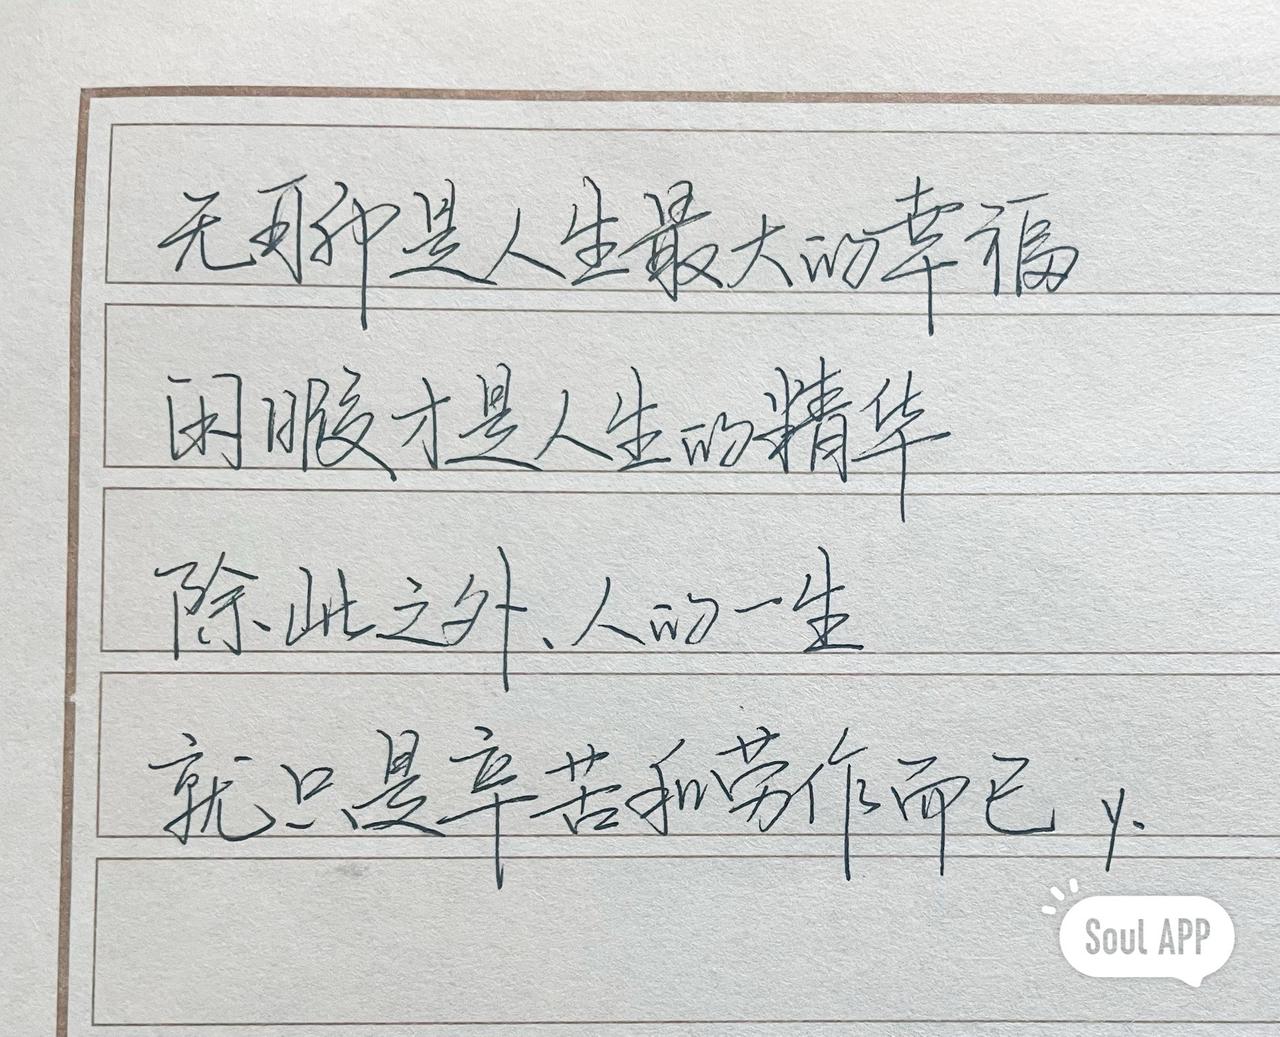 无聊是人生最大的幸福
闲暇才是人生的精华
除此之外、人的一生
就只是辛苦和劳作而已 y.
Soul APP